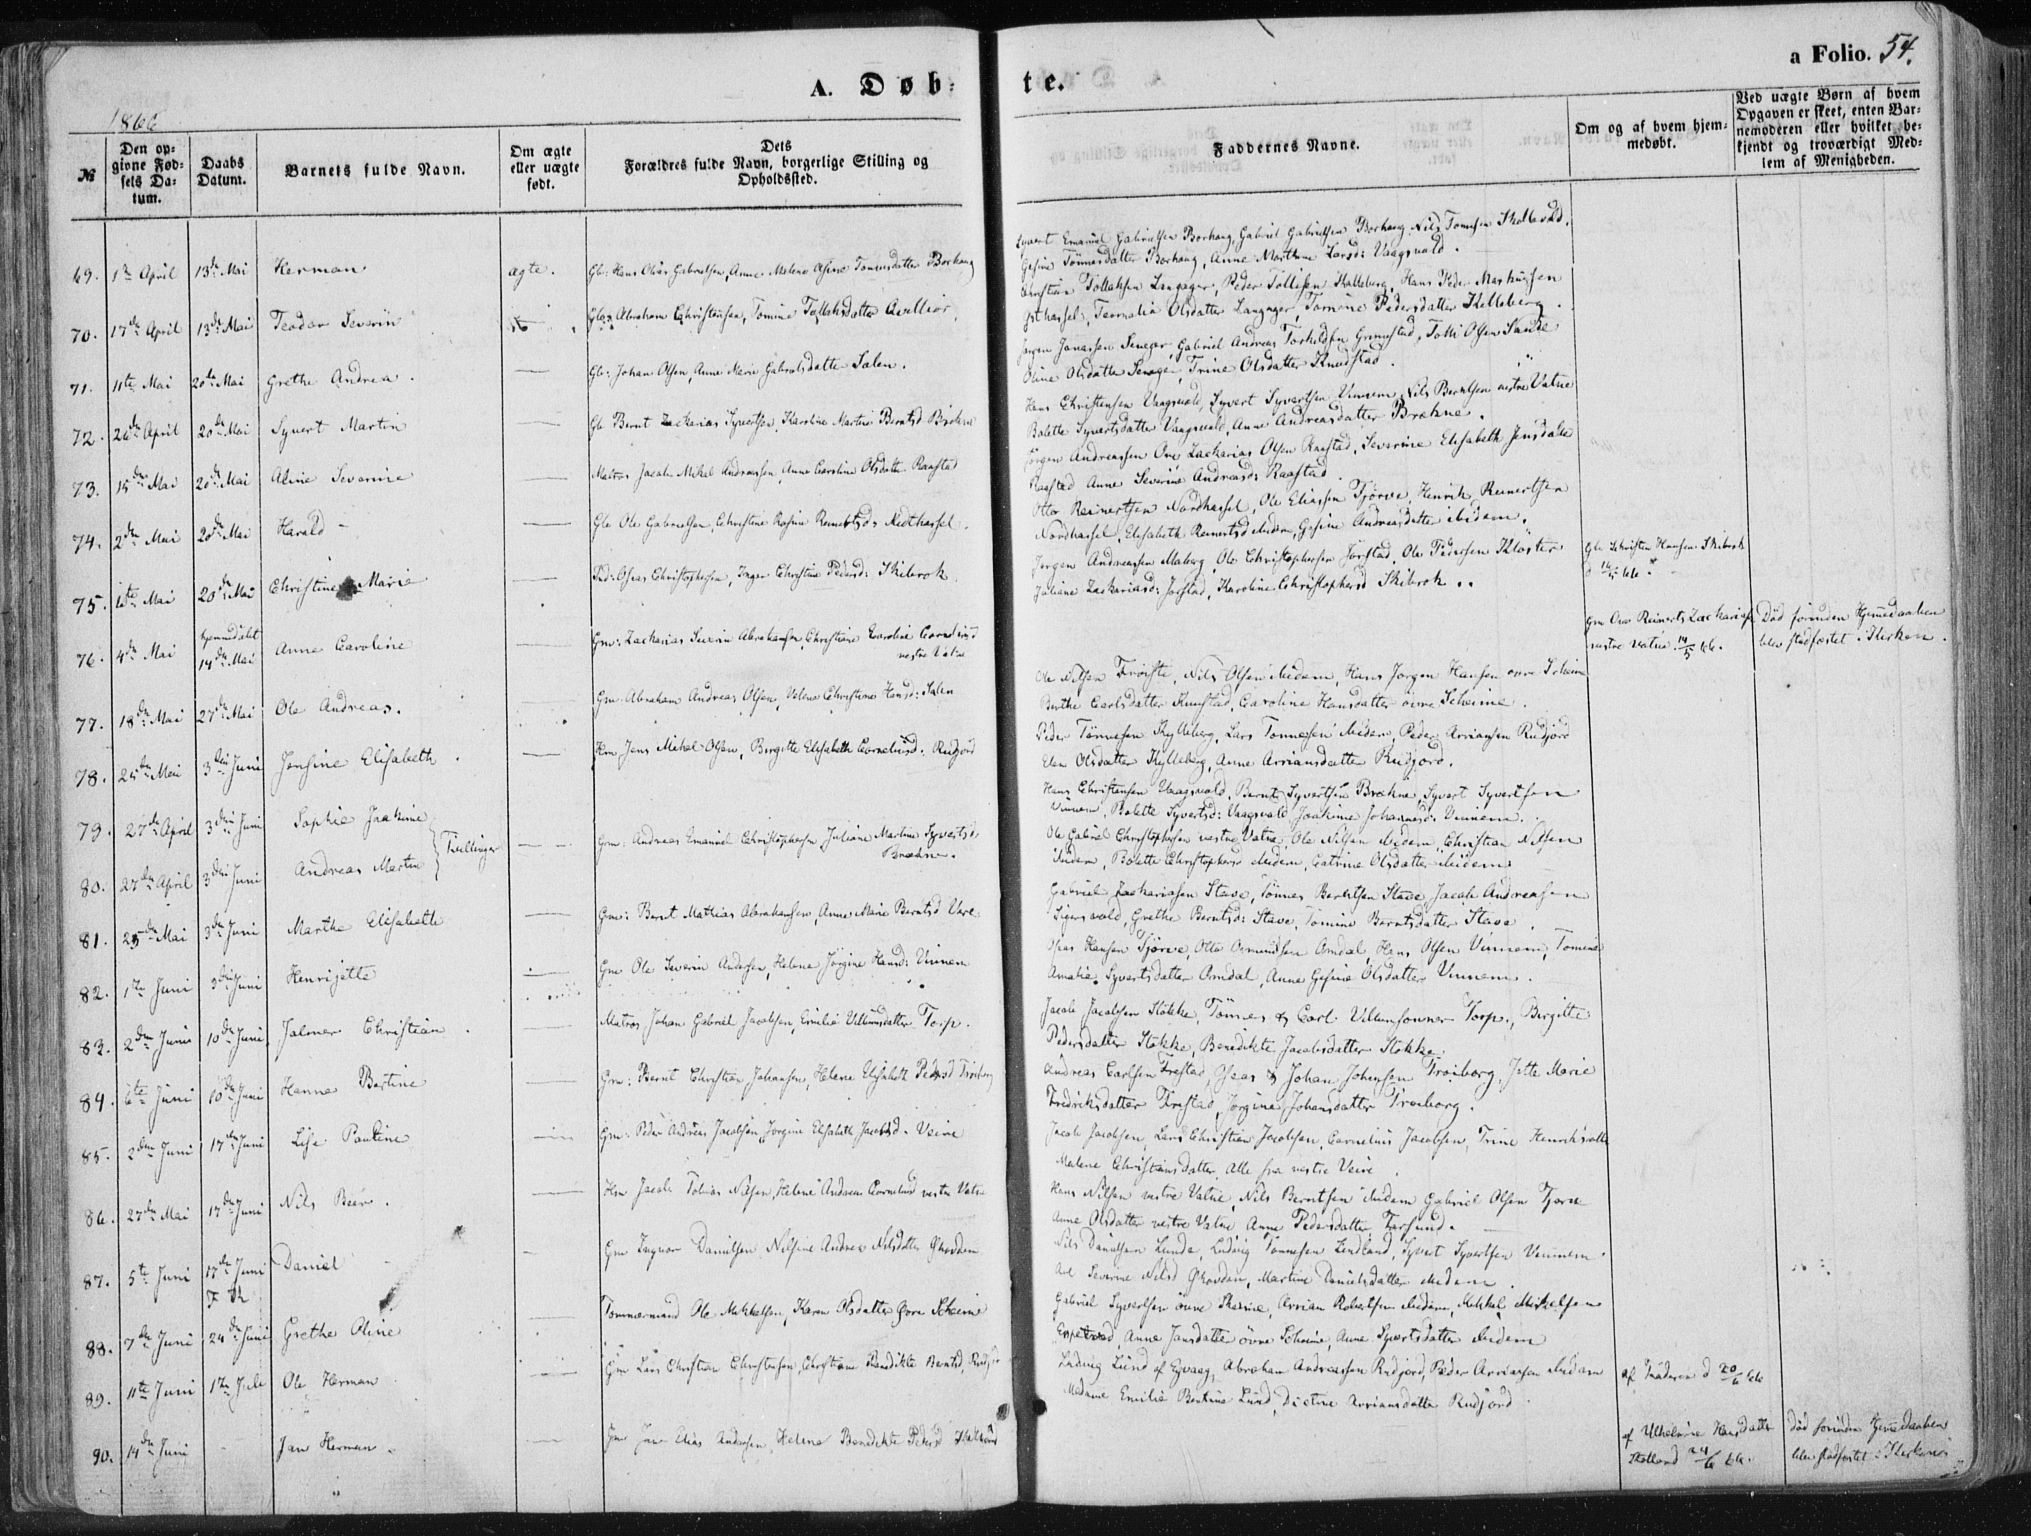 A. Døb-
te.
a Folio. 54.
1866
№
Den opgivne Fødsels Datum.
Daabs Datum.
Barnets fulde Navn.
Om ægte eller uægte født.
Dets Forældres fulde Navn, borgerlige Stilling og Opholdssted.
Faddernes Navne.
Om og af hvem hjemmedøbt.
Ved uægte Børn af hvem Opgaven er skeet, enten Barnemoderen eller hvilket bekjendt og troværdigt Medlem af Menigheden.
69. 1ste April 13de Mai Herman ægte. Gbr. Hans Olaus Gabrielsen, Anne Malene Tønnesdatter Borhaug
Syvert Emanuel Gabrielsen Borhaug, Gabriel Gabrielsen Borhaug, Nils Tønnesen Skollevold.
Gesine Tønnesdatter Borhaug, Anne Marthine Larsd: Vaagsvold.
70. 17de April 13de Mai Teodor Severin Abraham Christensen, Tomine Tollaksdatter
Christian Tollaksen Langager, Peder Tollisen Kalleberg, Hans Peder Markussen
Østhassel, Langager, Tomine Pedersdatter Kalleberg.
71. 11te Mai 20de Mai Grethe Andrea. Gbr: Johan Olsen, Anne Marie Gabrielsdatter Salen.
Jørgen Jonassen Seneger, Gabriel Andreas Torkildsen Grimstad, Tolli Olsen Sande
Oline Olsdatter Seneger, Trine Olsdatter Knudstad.
72. 26de April 20de Mai Syvert Martin Gbr Bernt Zackarias Syvertsen, Karoline Martine Berntsd Brekne
Hans Christensen Vaagsvold, Syvert Syvertsen Vinnem, Nils Berntsen vestre Vatne
Bolette Syvertsdatter Vaagsvold, Anne Andreasdatter Brekne.
73. 15de Mai 20de Mai Aline Severine Matros Jacob Mikal Andreassen, Anne Caroline Olsdatter Raastad
Jørgen Andreassen Ore, Zackarias Olsen Raastad, Severine Elisabeth Jensdatter
Raastad Anne Severine Andreasd: Raastad
74. 2den Mai 20de Mai Harald Gbr Ole Gabrielsen, Christine Rasine Reinertsd: Nordhassel.
Otto Reinertsen Nordhassel, Ole Eliassen Tjørve, Henrik Reinertsen
Nordhassel, Elisabeth Reinertsd ibidem, Gesine Andreasdatter ibidem.
75. 6te Mai 20de Mai Christine Marie Osias Christophersen, Inger Christine Pedersd: Skibrok
Jørgen Andreassen Maberg, Ole Christophersen Jørstad, Ole Pedersen Kloster
Juliane Zackariasd: Jørstad, Karoline Christophersd Skibrok.
Gbr Christen Hansen Skibrok
76. 4de Mai hjemmedøbt 14de Mai Anne Caroline Gm: Zackarias Severin Abrahamsen, Christiane Caroline Corneliusd vestre Vatne
Gm Ove Reinert Zachariasen vestre Vatne 14/5 66.
Død forinden Hjemmedaaben blev stadfæstet i Kirken.
77. 18de Mai 27de Mai Ole Andreas. Gm. Abraham Andreas Olsen, Christine Hansd: Salen
Ole Nilsen Froiste, Nils Olsen ibidem, Hans Jørgen Hansen øvre Scheime
Berthe Carlsdatter Knustad, Caroline Hansdatter øvre Scheime.
78. 25de Mai 3die Juni Jensine Elisabeth. Hm Jens Mikal Olsen, Birgitte Elisabeth Corneliusd: Rudjord
Peder Tønnesen Kylleberg, Lars Tønnesen ibidem, Peder Arriansen Rudjord
Olsdatter Kylleberg, Anne Arriansdatter Rudjord.
79. 27de April 3die Juni Sophie Joakine
80. 27de April 3die Juni Andreas Martin
Tvillinger
Gm: Andreas Emanuel Christophersen, Juliane Martine Syvertsd: Brekne.
Hans Christensen Vaagsvold, Bernt Syvertsen Brekne, Syvert Syvertsen
Vinnem, Bolette Syvertsd: Vaagsvold, Joakime Johannesd: Vinnem.
Ole Gabriel Christophersen vestre Vatne, Ole Nilsen ibidem, Christian Nilsen
ibidem, Bolette Christophersd ibidem, Catrine Olsdatter ibidem
81. 25de Mai 3die Juni Marthe Elisabeth Gm: Bernt Mathias Abrahamsen, Anne Marie Berntsd Vere
Gabriel Zachariasen Stave, Tønnes Berntsen Stave, Jacob Andreasen
Sigersvold, Grethe Berntsd: Stave, Tomine Berntsdatter Stave.
82. 1ste Juni 3die Juni Henrijette Gm Ole Severin Andersen, Helene Jørgine Hansd: Vinnem
Osias Hansen Tjørve, Otto Osmundsen Omdal, Hans Olsen Vinnem, Tomine
Amalie Syvertsdatter Omdal, Anne Gesine Olsdatter Vinnem.
83. 2den Juni 10de Juni Jalmer Christian. Matros Johan Gabriel Jacobsen, Emilie Villumsdatter Torp.
Jacob Jacobsen Stokke, Tønnes & Carl Villumsønner Torp, Birgitte
Pedersdatter Stokke, Benedikte Jacobsdatter Stokke
84. 6te Juni 10de Juni Hanna Bertine Gm: Bernt Christian Johansen, Helene Elisabeth Pedersd Troiborg
Andreas Carlsen Frestad, Osias & Johan Johansen Troiborg, Jette Marie
Fredriksdatter Frestad, Jørgine Johansdatter Troiborg.
85. 2den Juni 17de Juni Lise Pauline Gm: Peder Andreas Jacobsen, Jørgine Elisabeth Jacobsd. Veive
Jacob Jacobsen, Lars Christian Jacobsen, Cornelius Jacobsen, Trine Henriksdatter
Malene Christiansdatter, Alle fra vestre Veive.
86. 27de Mai 17de Juni Nils Beer. Hm Jacob Tobias Nilsen, Helene Andrea Corneliusd vestre Vatne
Hans Nilsen vestre Vatne, Nils Berntsen ibidem, Gabriel Olsen Tjørve
Anne Olsdatter vestre Vatne, Anne Pedersdatter Farsund.
87. 5te Juni 17de Juni F K Daniel Gm Ingvar Danielsen, Nilsine Andrea Nilsdatter
Nils Danielsen Lunde, Ludvig Tønnesen Lindland, Syvert Syvertsen Vinnem
Severine Nilsd, Martine Danielsdatter ibidem.
88. 7de Juni 24de Juni Grethe Oline Tømmermand Ole Mikkelsen, Karen Olsdatter Øvre Scheime
Gabriel Syvertsen øvre Skeime, Arrian Robertsen ibidem, Mikkel Mikkelsen
Anne Jansdatter øvre Scheime, Anne Syvertsdatter ibidem
89. 11te Juni 1ste Juli Ole Herman Gm Lars Christian Christensen, Christiane Benedikte Berntsd, Rudjord
Ludvig Lund af Egvaag, Abraham Andreassen Rudjord, Peder Arriansen ibidem
Madame Emilie Bentine Lund, Arriansdatter Rudjord.
af Faderen d 20/6 66
90. 14de Juni - Jan Herman. Jan Elias Andersen, Helene Benedikte Pedersd
af Vilhelmine Hansdatter
24/6 66.
Død forinden Hjemmedaaben
blev stadfæstet i Kirken